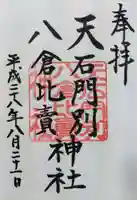 奉拝
天石門別
八倉比賣
神社
平成二八年八月二十一日